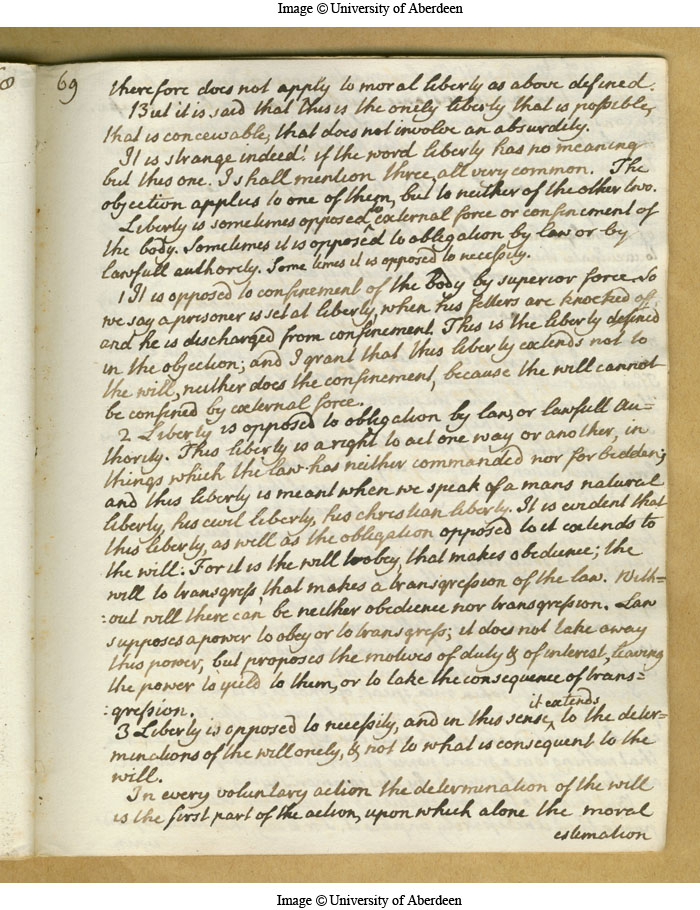 Image © University of Aberdeen
8
69
therefore does not apply to moral liberty as above defined.
But it is said that this is the onely liberty that is possible,
that is conceivable, that does not involve an absurdity.
It is strange indeed! if the word liberty has no meaning
but this one. I shall mention three, all very common. The
objection applies to one of them, but to neither of the other two.
Liberty is sometimes opposed to external force or confinement of
the body. Sometimes it is opposed to obligation by law or by
lawfull authority. Some times it is opposed to necessity.
1 It is opposed to confinement of the body by superior force. So
we say a prisoner is set at liberty, when his fetters are knocked off,
and he is discharged from confinement. This is the liberty defined
in the objection; and I grant that this liberty extends not to
the will, neither does the confinement, because the will cannot
be confined by external force.
2 Liberty is opposed to obligation by law, or lawfull au=
thority. This liberty is a right to act one way or another, in
things which the law has neither commanded nor forbidden;
and this liberty is meant when we speak of a mans natural
liberty, his civil liberty, his christian liberty. It is evident that
this liberty, as well as the obligation opposed to it extends to
the will: For it is the will to obey, that makes obedience; the
will to transgress, that makes a transgression of the law. With=
:out will there can be neither obedience nor transgression. Law
supposes a power to obey or to transgress; it does not take away
this power, but proposes the motives of duty & of interest, leaving
the power to yield to them, or to take the consequence of trans=
:gression.
3 Liberty is opposed to necessity, and in this sense, it extends to the deter=
minations of the will onely, & not to what is consequent to the
will.
In every voluntary action the determination of the will
is the first part of the action, upon which alone the moral
estemation
Image © University of Aberdeen